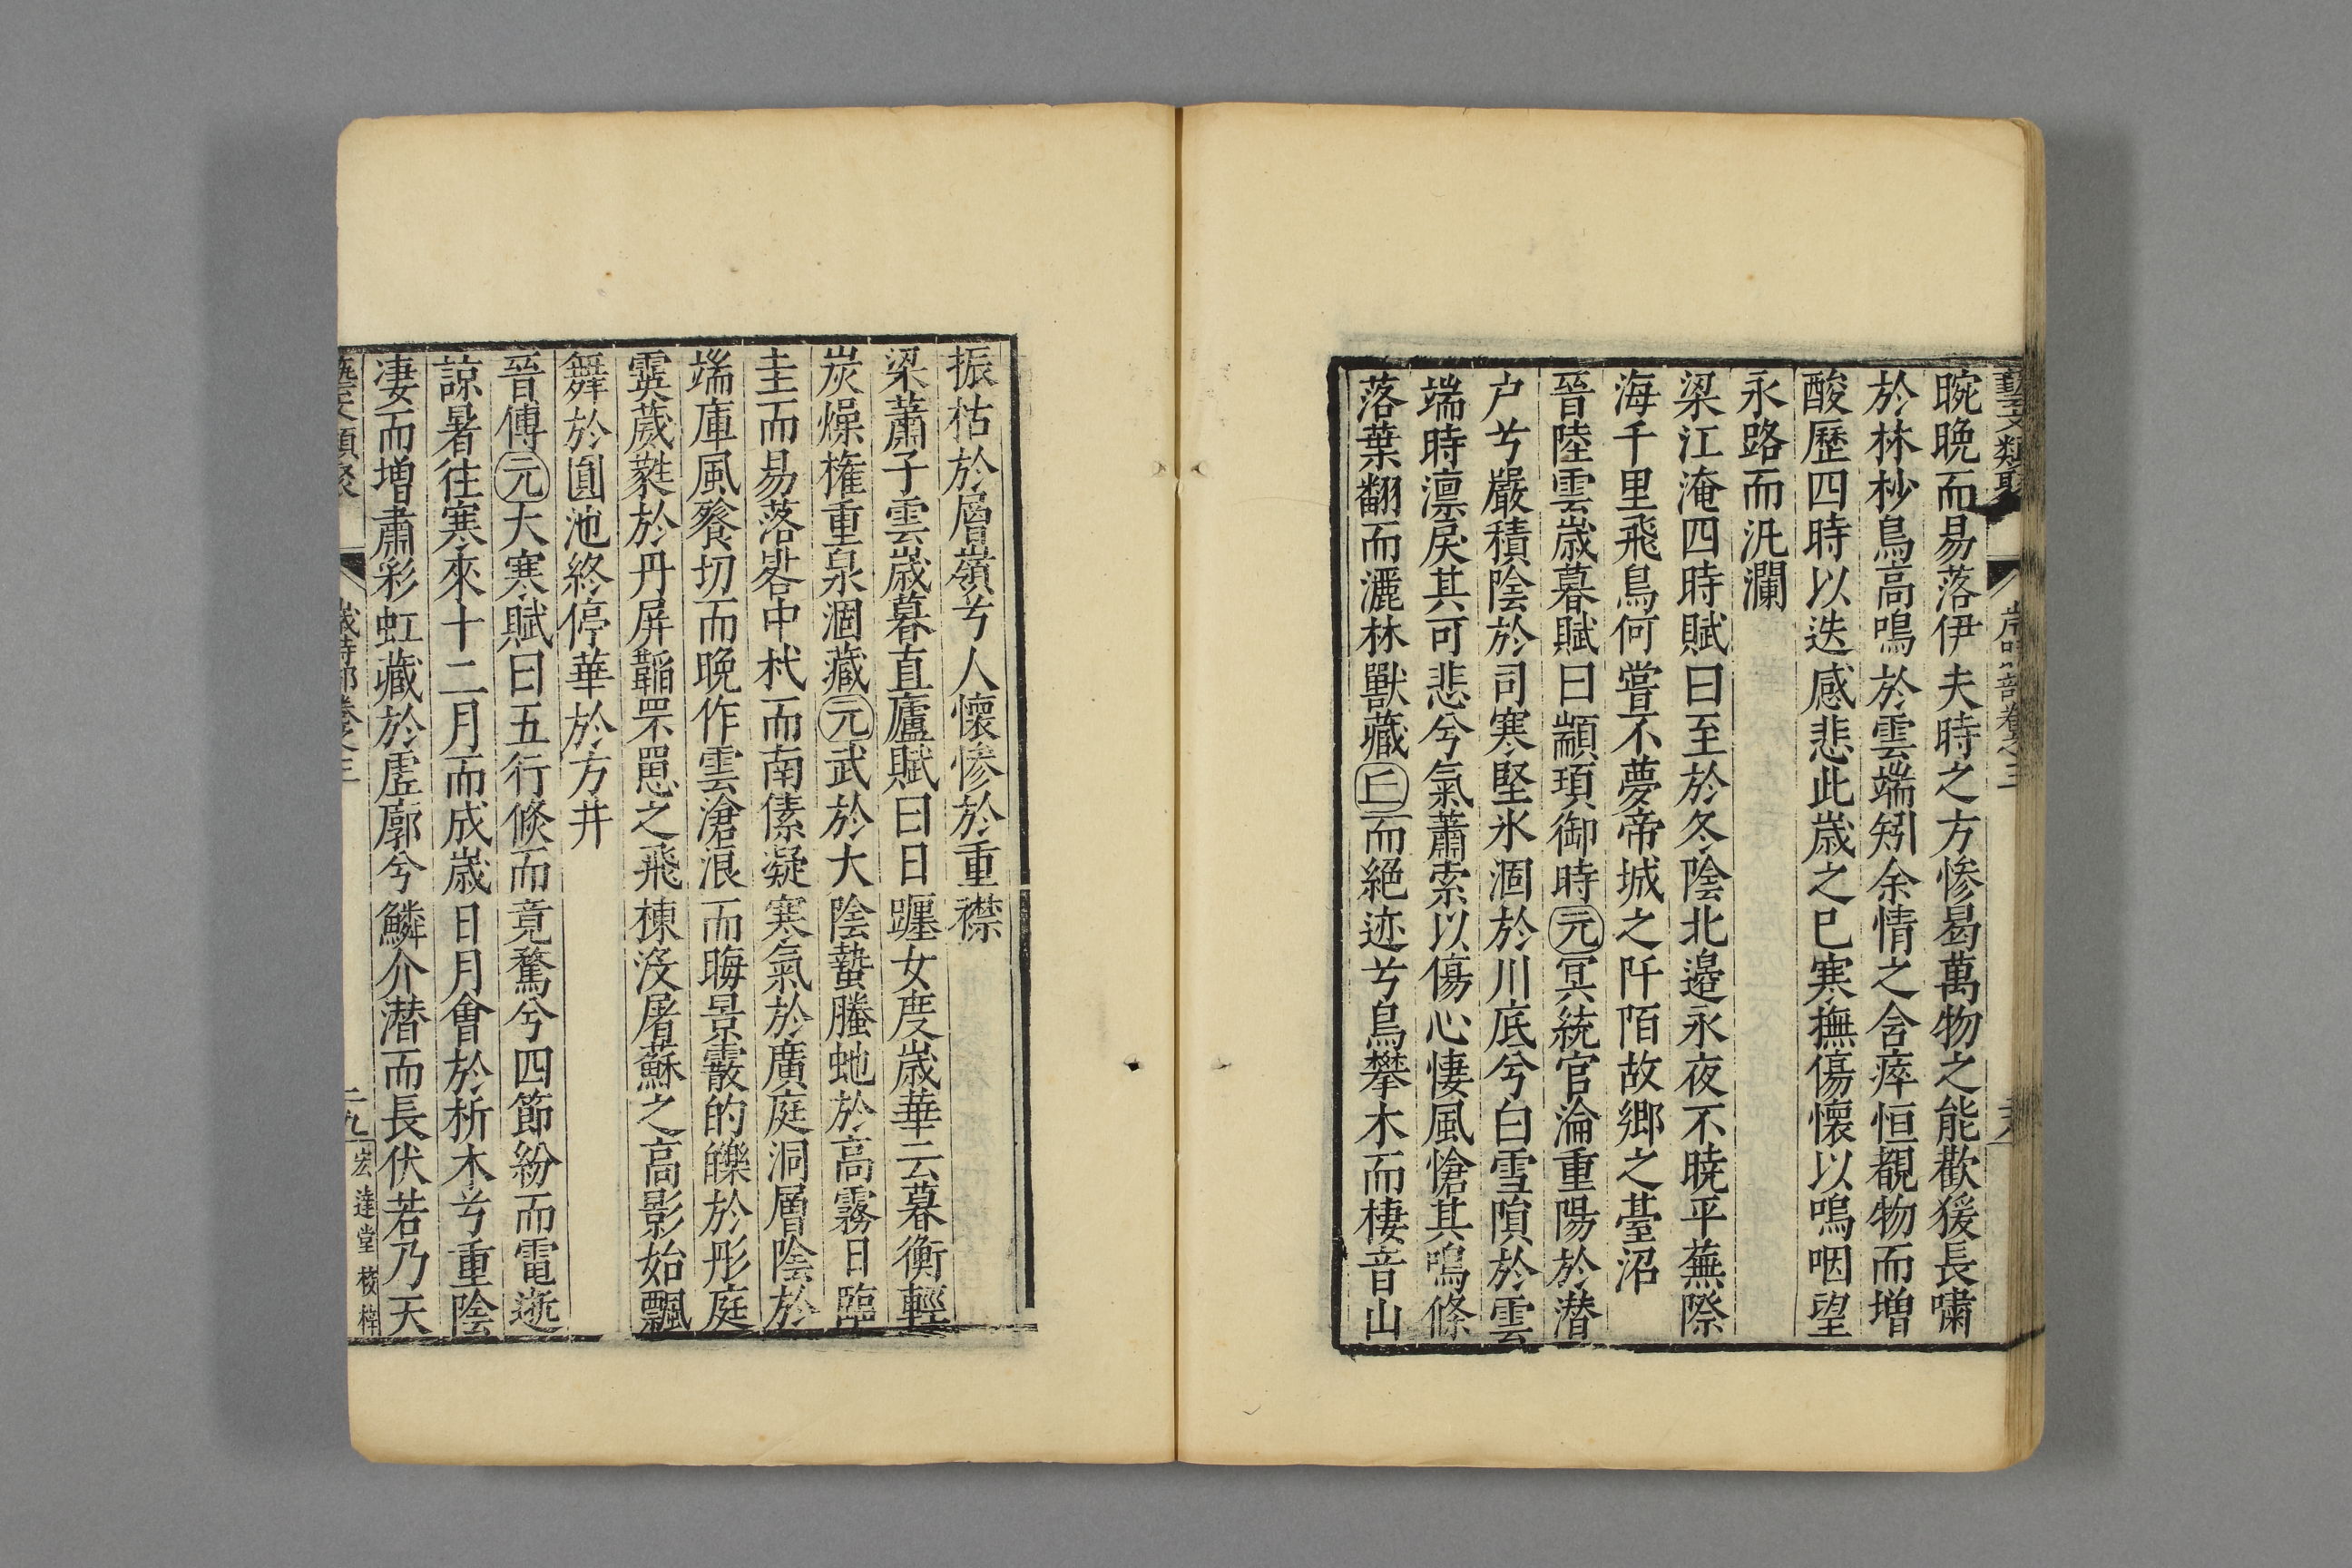 藝文類聚 歲時部卷之三
晼晚而易落伊夫時之方慘曷萬物之能歡猨長嘯
於林杪鳥高鳴於雲端矧余情之含瘁恒覩物而增
酸歷四時以迭感悲此歲之已寒撫傷懷以嗚咽望
永路而汍瀾
梁江淹四時賦曰至於冬陰北邉永夜不曉平蕪際
海千里飛鳥何嘗不夢帝城之阡陌故鄉之臺沼
晉陸雲歲暮賦曰顓頊御時元冥統官淪重陽於潜
户兮嚴積陰於司寒堅氷涸於川底兮白雪隕於雲
端時凛戾其可悲兮氣蕭索以傷心悽風愴其鳴條
落葉翻而灑林獸藏丘而絕迹兮鳥攀木而棲音山
振枯於層嶺兮人懷慘於重襟
梁蕭子雲歲暮直廬賦曰日躔女度歲華云暮衡輕
炭燥権重泉涸藏元武於大陰蟄螣虵於高霧日臨
圭而易落晷中杙而南傃凝寒氣於廣庭洞層陰於
端庫風飱切而晚作雲滄浪而晦景霰的皪於彤庭
霙葳蕤於丹屏韜罘罳之飛棟沒屠蘇之高影始飄
舞於圓池終停華於方井
晉傅元大寒賦曰五行倐而竟騖兮四節紛而電逝
諒暑往寒來十二月而成歲日月會於析木兮重陰
凄而增肅彩虹藏於虗廓兮鱗介潜而長伏若乃天
藝文類聚 歲時部卷之三 二九 宏達堂校梓